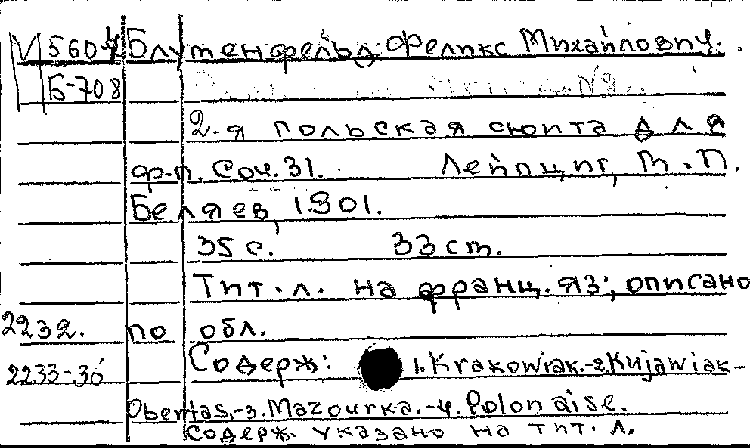 М 5604 Блуменфельд. Феликс Михайлович.
Б-708 №2.
2-я польская сюита для
ф-п. Соч. 31. Лейпциг, М. П.
Беляев, 1901.
35 с. 33 cm.
Тит. л. на франц. яз., описано
2232. по обл.
Содерж: 1. Krakowiak.-2. Kujawiak-
2233-36
Obertas.-3. Mazourka.-4. Polonaise.
Содерж. указано на тит. л.